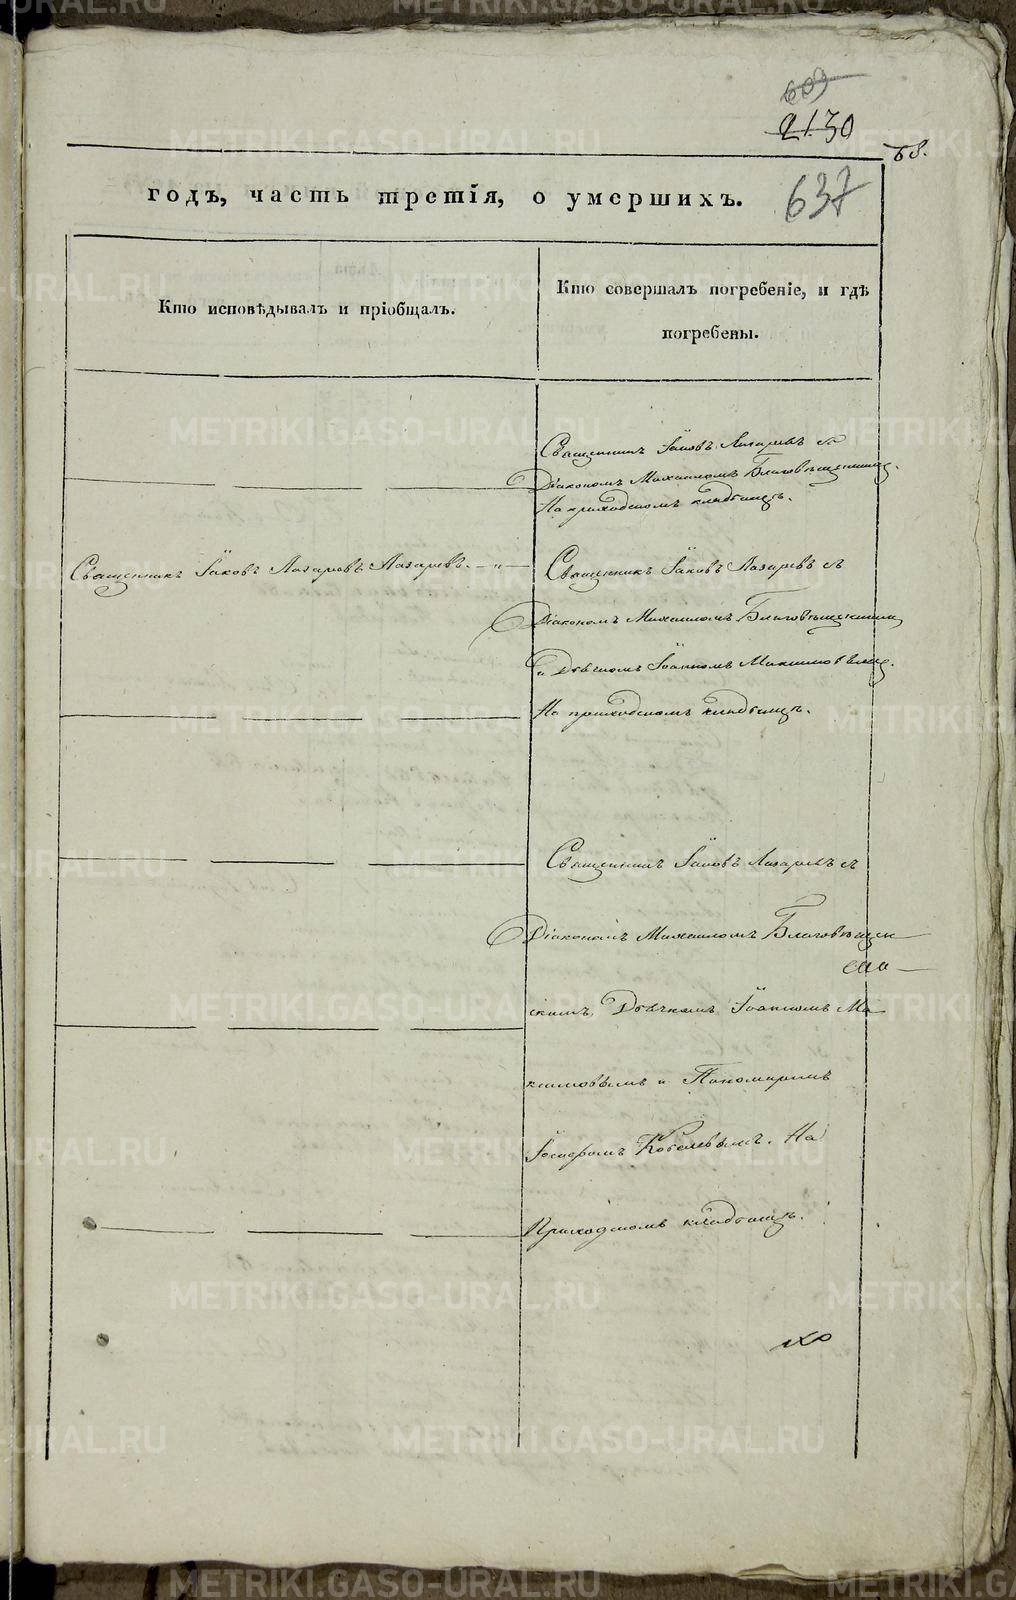 609
2130
68.
637
годъ, часть третія, о умершихъ.
Кто исповѣдывалъ и пріобщалъ.
Кто совершалъ погребеніе, и гдѣ
погребены.
Священникъ Іаковъ Лазаревъ съ
Діакономъ Михаиломъ Благовѣщенскимъ.
На приходскомъ кладбищѣ.
Священникъ Іаковъ Лазаревъ Лазаревъ. — „ —
Священникъ Іаковъ Лазаревъ съ
Діакономъ Михаиломъ Благовѣщенскимъ
и Дьячкомъ Іоанномъ Максимовымъ.
На приходскомъ кладбищѣ.
Священникъ Іаковъ Лазаревъ съ
Діакономъ Михаиломъ Благовѣщен
скимъ, Дьячкомъ Іоанномъ Ма
ксимовымъ и Пономаремъ
Іосифомъ Кобелевымъ. На
Приходскомъ кладбищѣ.
METRIKI.GASO-URAL.RU